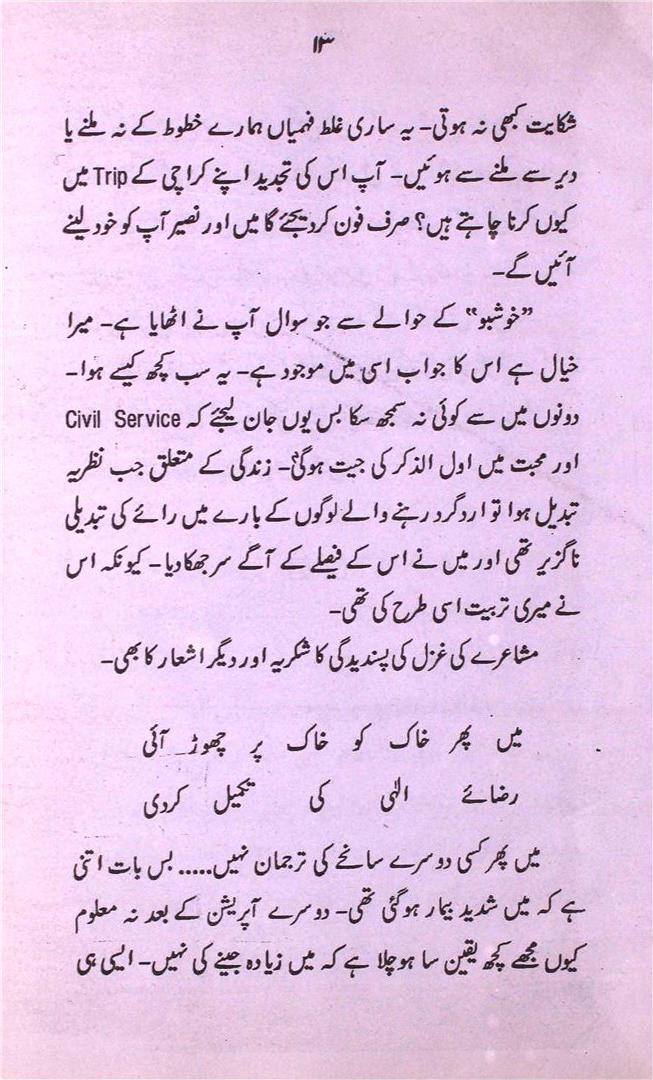 ۱۳
شکایت کبھی نہ ہوتی۔ یہ ساری غلط فہمیاں ہمارے خطوط کے نہ ملنے یا
دیر سے ملنے سے ہوئیں۔ آپ اس کی تجدید اپنے کراچی کے Trip میں
کیوں کرنا چاہتے ہیں؟ صرف فون کردیجئے گا میں اور نصیر آپ کو خود لینے
آئیں گے۔
”خوشبو“ کے حوالے سے جو سوال آپ نے اٹھایا ہے۔ میرا
خیال ہے اس کا جواب اسی میں موجود ہے۔ یہ سب کچھ کیسے ہوا۔
دونوں میں سے کوئی نہ سمجھ سکا بس یوں جان لیجئے کہ Civil Service
اور محبت میں اول الذکر کی جیت ہوگئی۔ زندگی کے متعلق جب نظریہ
تبدیل ہوا تو اردگرد رہنے والے لوگوں کے بارے میں رائے کی تبدیلی
ناگزیر تھی اور میں نے اس کے فیصلے کے آگے سر جھکا دیا۔ کیونکہ اس
نے میری تربیت اسی طرح کی تھی۔
مشاعرے کی غزل کی پسندیدگی کا شکریہ اور دیگر اشعار کا بھی۔
میں پھر خاک کو خاک پر چھوڑ آئی
رضائے الٰہی کی تکمیل کردی
میں پھر کسی دوسرے سانحے کی ترجمان نہیں..... بس بات اتنی
ہے کہ میں شدید بیمار ہوگئی تھی۔ دوسرے آپریشن کے بعد نہ معلوم
کیوں مجھے کچھ یقین سا ہوچلا ہے کہ میں زیادہ جینے کی نہیں۔ ایسی ہی